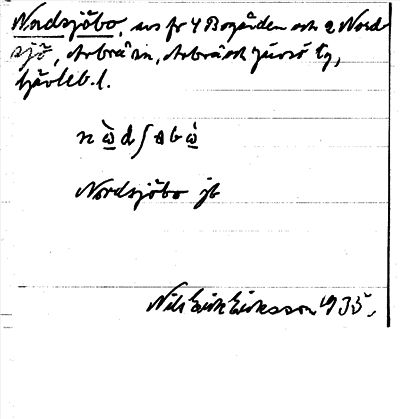 Nordsjöbo, urs fr 4 Bogården och 2 Nord
sjö, Arbrå sn, Arbrå och Järvsö tg,
Gävleb. l.
n ὼ̲ d ʃ ɵ b ὼ̲
Nordsjöbo jb
Nils Erik Eriksson 1935.